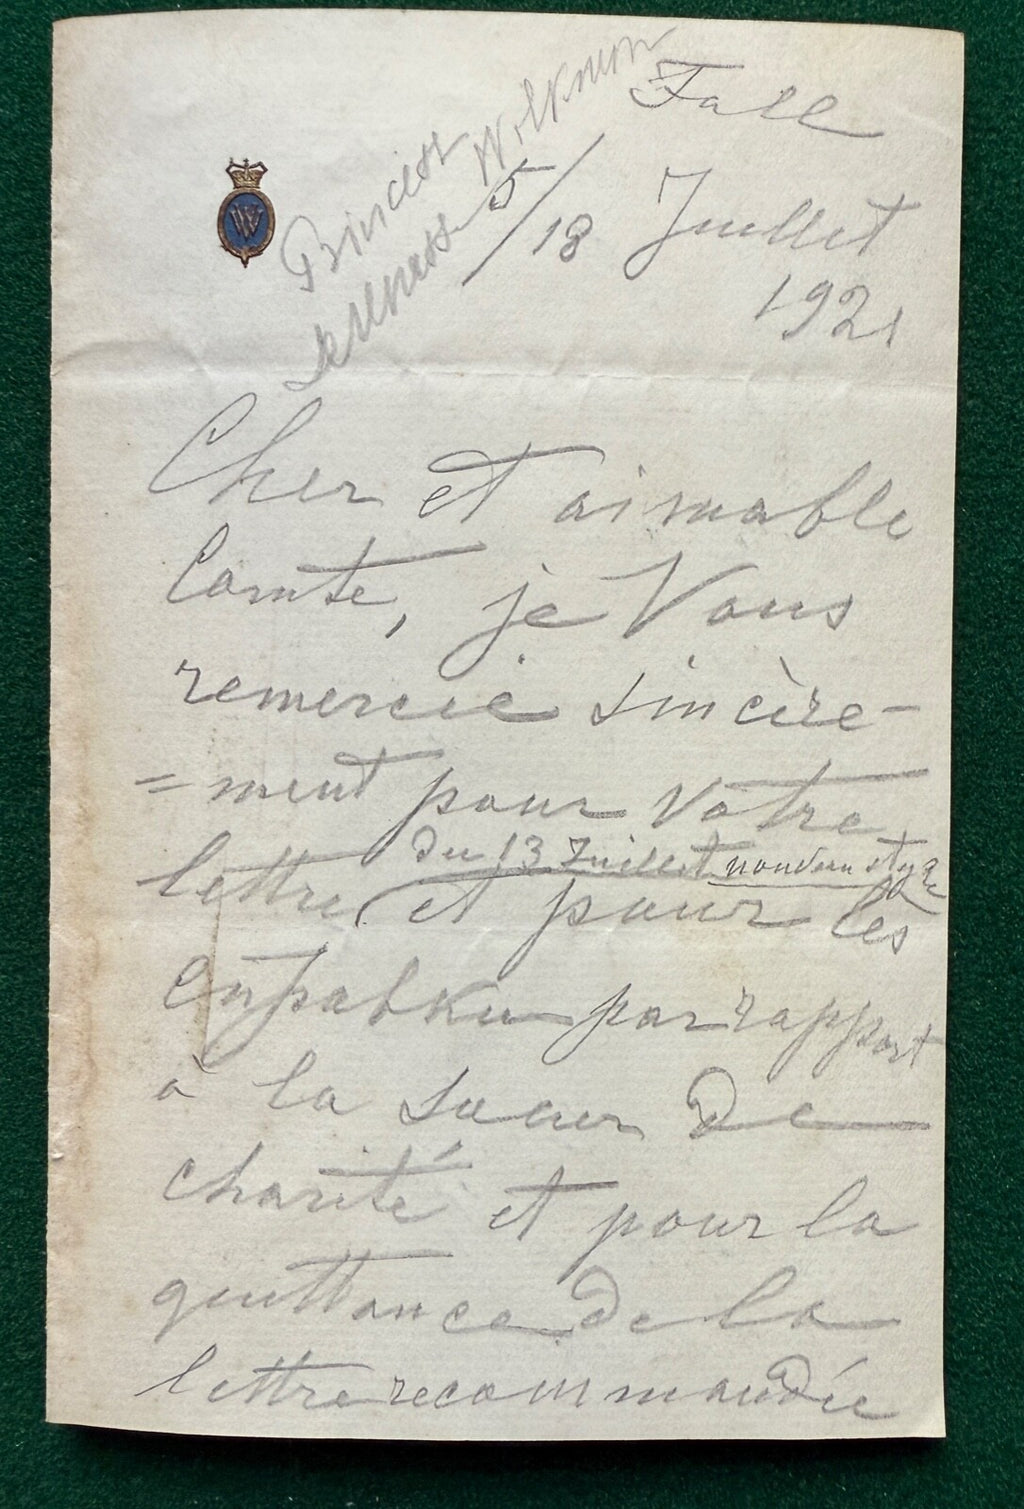 Fall
Princess Wolkonn
5/18 Juillet
1921
W
Cher et aimable
Comte, je Vous
remercie sincère-
=ment pour Votre
du 13 Juillet nouveau style
lettre, et pour les
справки par rapport
à la soeur de
charité et pour la
quittance de la
lettre recommandée